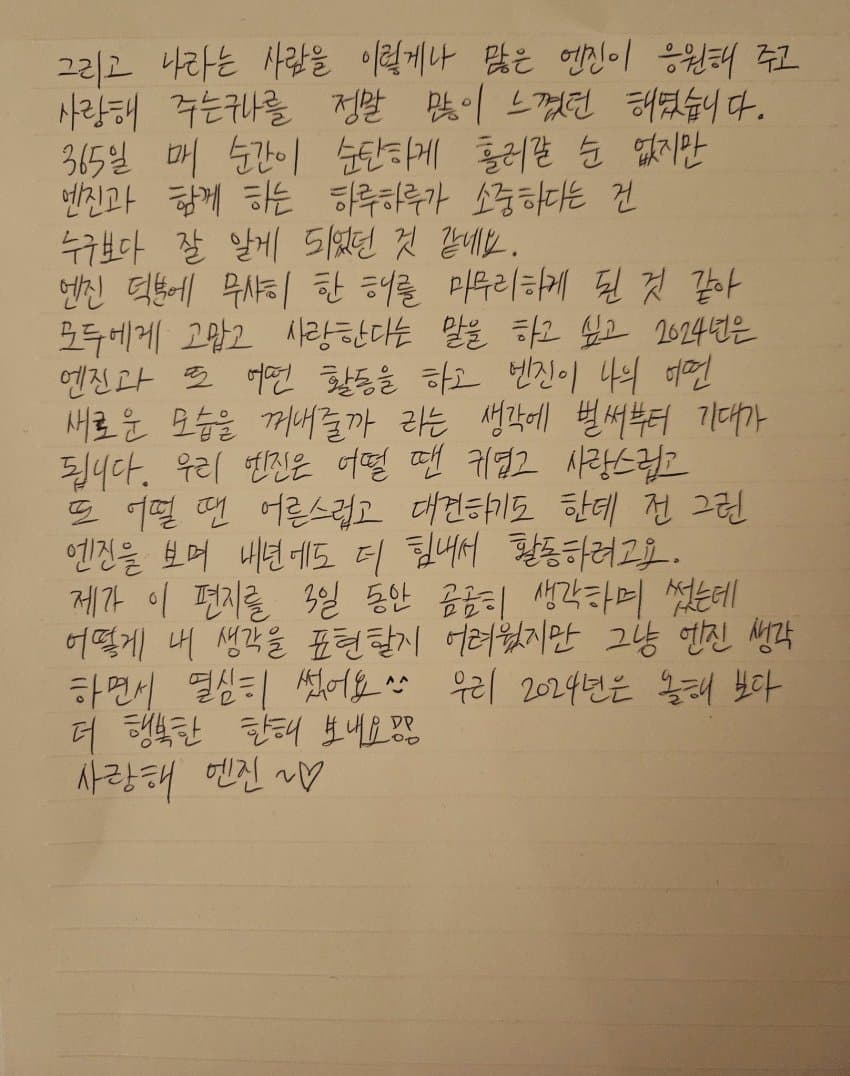 그리고 나라는 사람을 이렇게나 많은 엔진이 응원해 주고
사랑해 주는구나를 정말 많이 느꼈던 해였습니다.
365일 매 순간이 순탄하게 흘러갈 순 없지만
엔진과 함께 하는 하루하루가 소중하다는 건
누구보다 잘 알게 되었던 것 같네요.
엔진 덕분에 무사히 한 해를 마무리하게 된 것 같아
모두에게 고맙고 사랑한다는 말을 하고 싶고 2024년은
엔진과 또 어떤 활동을 하고 엔진이 나의 어떤
새로운 모습을 꺼내줄까 라는 생각에 벌써부터 기대가
됩니다. 우리 엔진은 어떨 땐 귀엽고 사랑스럽고
또 어떨 땐 어른스럽고 대견하기도 한데 전 그런
엔진을 보며 내년에도 더 힘내서 활동하려고요.
제가 이 편지를 3일 동안 곰곰히 생각하며 썼는데
어떻게 내 생각을 표현할지 어려웠지만 그냥 엔진 생각
하면서 열심히 썼어요^^ 우리 2024년은 올해 보다
더 행복한 한해 보내요!!
사랑해 엔진~♡